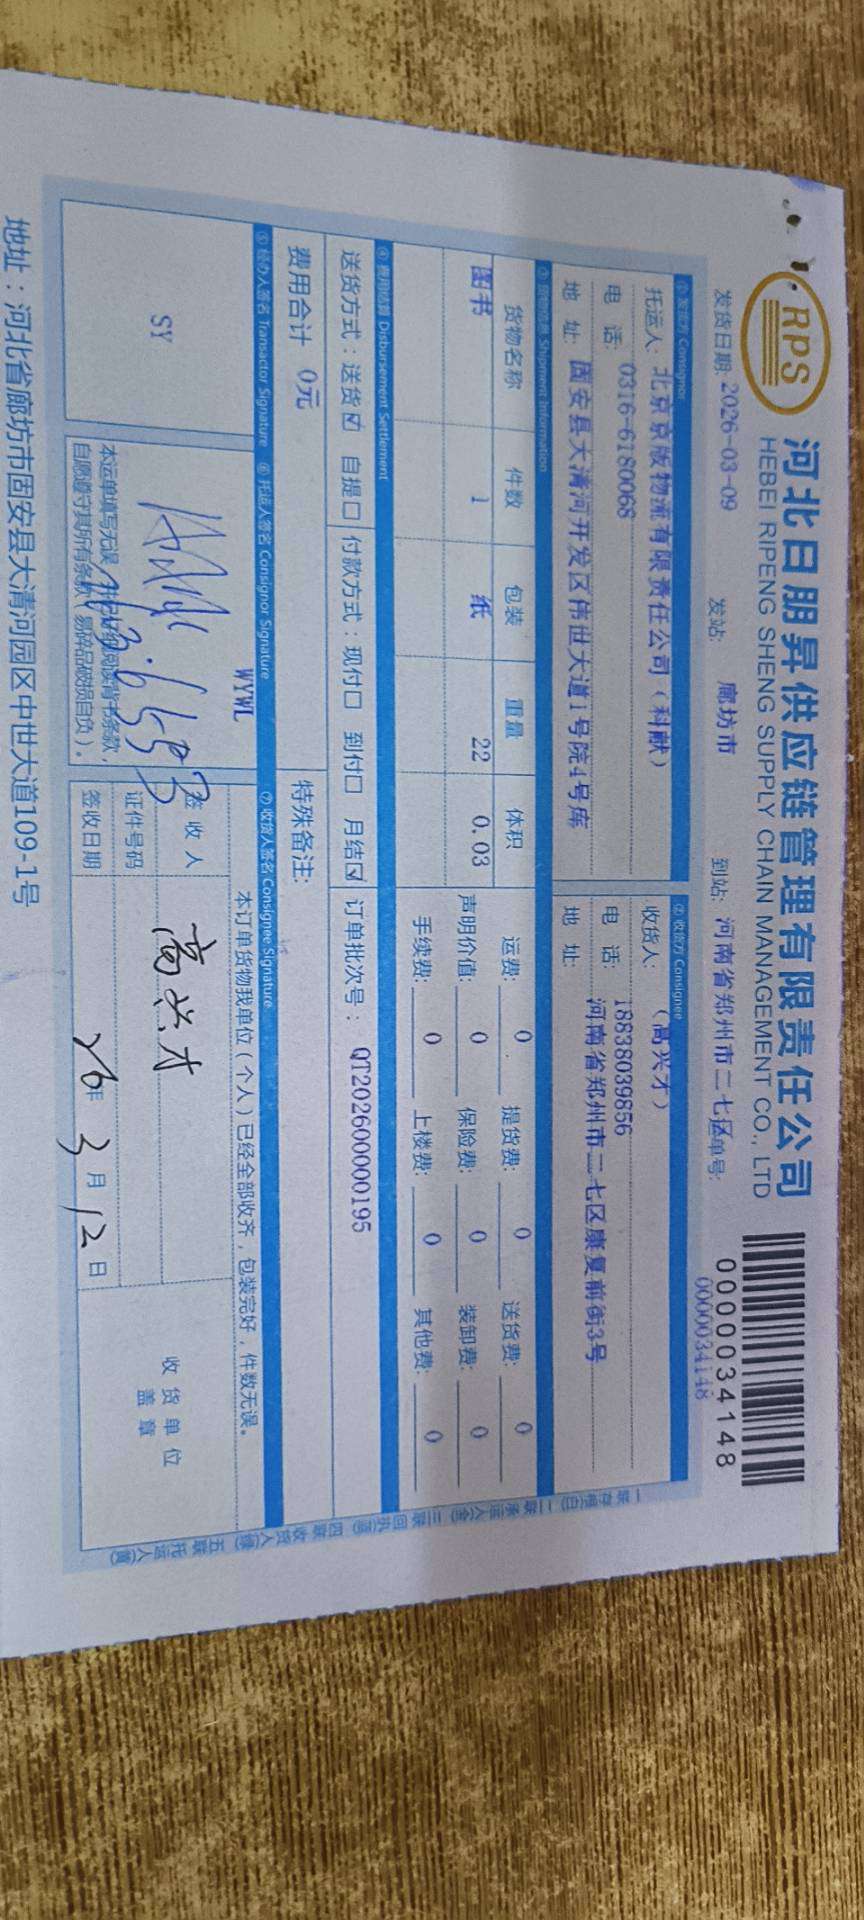 RPS
河北日朋昇供应链管理有限责任公司
HEBEI RIPENG SHENG SUPPLY CHAIN MANAGEMENT CO., LTD
0000034148
发货日期: 2026-03-09 发站: 廊坊市 到站: 河南省郑州市二七区 单号: 0000034148
① 发货方 Consignor
托运人: 北京京版物流有限责任公司（科献）
电 话: 0316-6180068
地 址: 固安县大清河开发区伟世大道1号院4号库
② 收货方 Consignee
收货人: （高兴才）
电 话: 18838039856
地 址: 河南省郑州市二七区康复前街3号
③ 货物信息 Shipment Information
货物名称 件数 包装 重量 体积
图书 1 纸 22 0.03
运费: 0 提货费: 0 送货费: 0
声明价值: 0 保险费: 0 装卸费: 0
手续费: 0 上楼费: 0 其他费: 0
④ 费用结算 Disbursement Settlement
送货方式：送货☑ 自提☐ 付款方式：现付☐ 到付☐ 月结☑ 订单批次号： QT202600000195
费用合计 0元 特殊备注:
⑤ 经办人签名 Transactor Signature ⑥ 托运人签名 Consignor Signature ⑦ 收货人签名 Consignee Signature
SY
WYWL
本运单填写无误
自愿遵守其所有条款（易碎品破损自负）。
本订单货物我单位（个人）已经全部收齐，包装完好，件数无误。
签 收 人 高兴才
证件号码
签收日期 26年 3月 12日
收 货 单 位
盖 章
一联存根(白) 二联承运人(金) 三联回执(蓝) 四联收货人(绿) 五联托运人(黄)
地址：河北省廊坊市固安县大清河园区中世大道109-1号